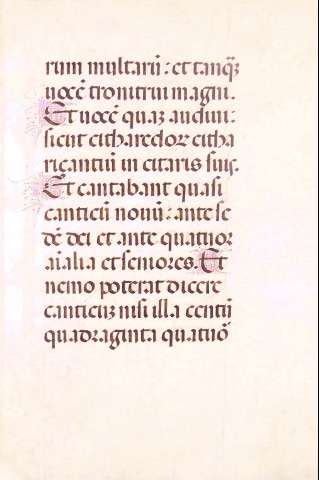 rum multarū: et tanq̃ȝ
uocē tronitrui magni.
Et uocē quaȝ audiui:
sicut citharedoꝝ citha
ricantiū in citaris suis.
Et cantabant quasi
canticū nouū: ante se
dē dei et ante quatuor
aīalia et seniores. Et
nemo poterat dicere
canticuȝ nisi illa centū
quadraginta quatuõ